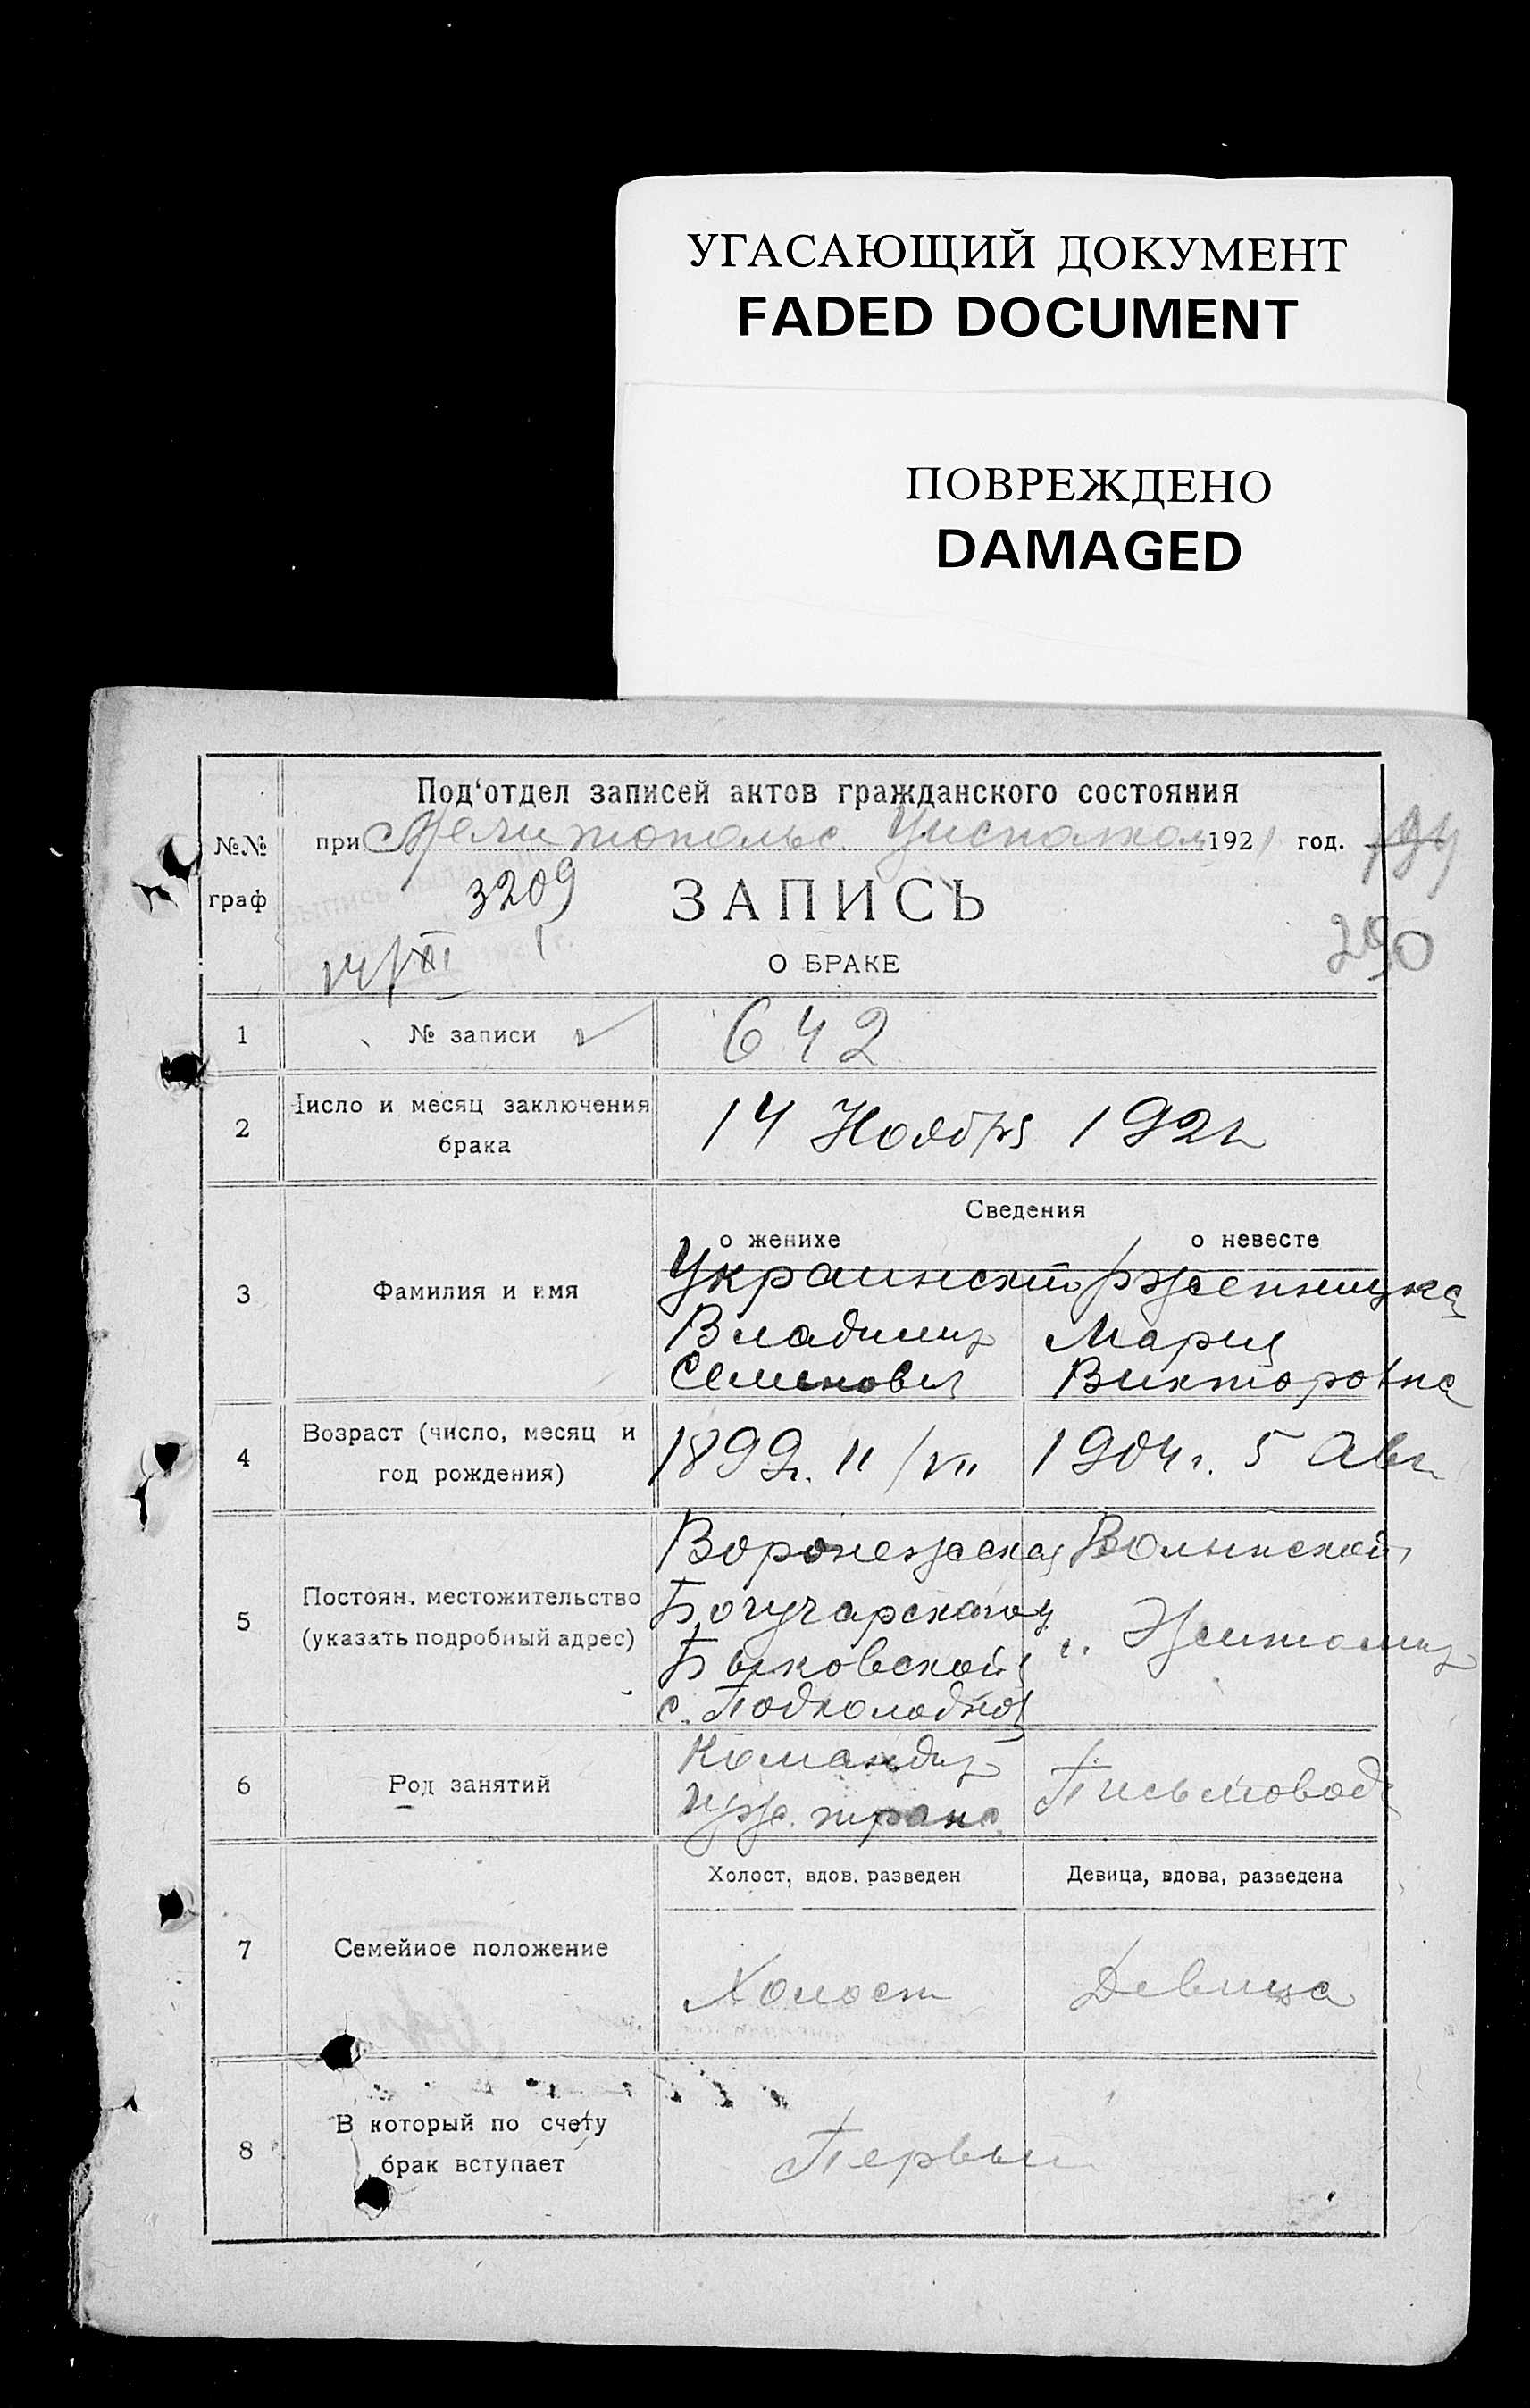 УГАСАЮЩИЙ ДОКУМЕНТ
FADED DOCUMENT
ПОВРЕЖДЕНО
DAMAGED
Под'отдел записей актов гражданского состояния
№№ граф
при Мелитопольс. Уисполком 1921 год.
194
3209
ЗАПИСЬ
290
14/XI
О БРАКЕ
1 № записи 642
2 Число и месяц заключения
брака
14 Ноября 1921
Сведения
о женихе о невесте
3 Фамилия и имя
Украинский
Владимир Мария
Семенович Викторовна
4 Возраст (число, месяц и
год рождения)
1899г. 11/VII 1904г. 5 Авг
5 Постоян. местожительство
(указать подробный адрес)
Воронежская Волынской
Богучарского у г. Житомир
Быковской
с. Подколодное
6 Род занятий
Командир Письмовод
гуж. транс.
7 Семейное положение
Холост, вдов. разведен Девица, вдова, разведена
Холост Девица
8 В который по счету
брак вступает
Первый